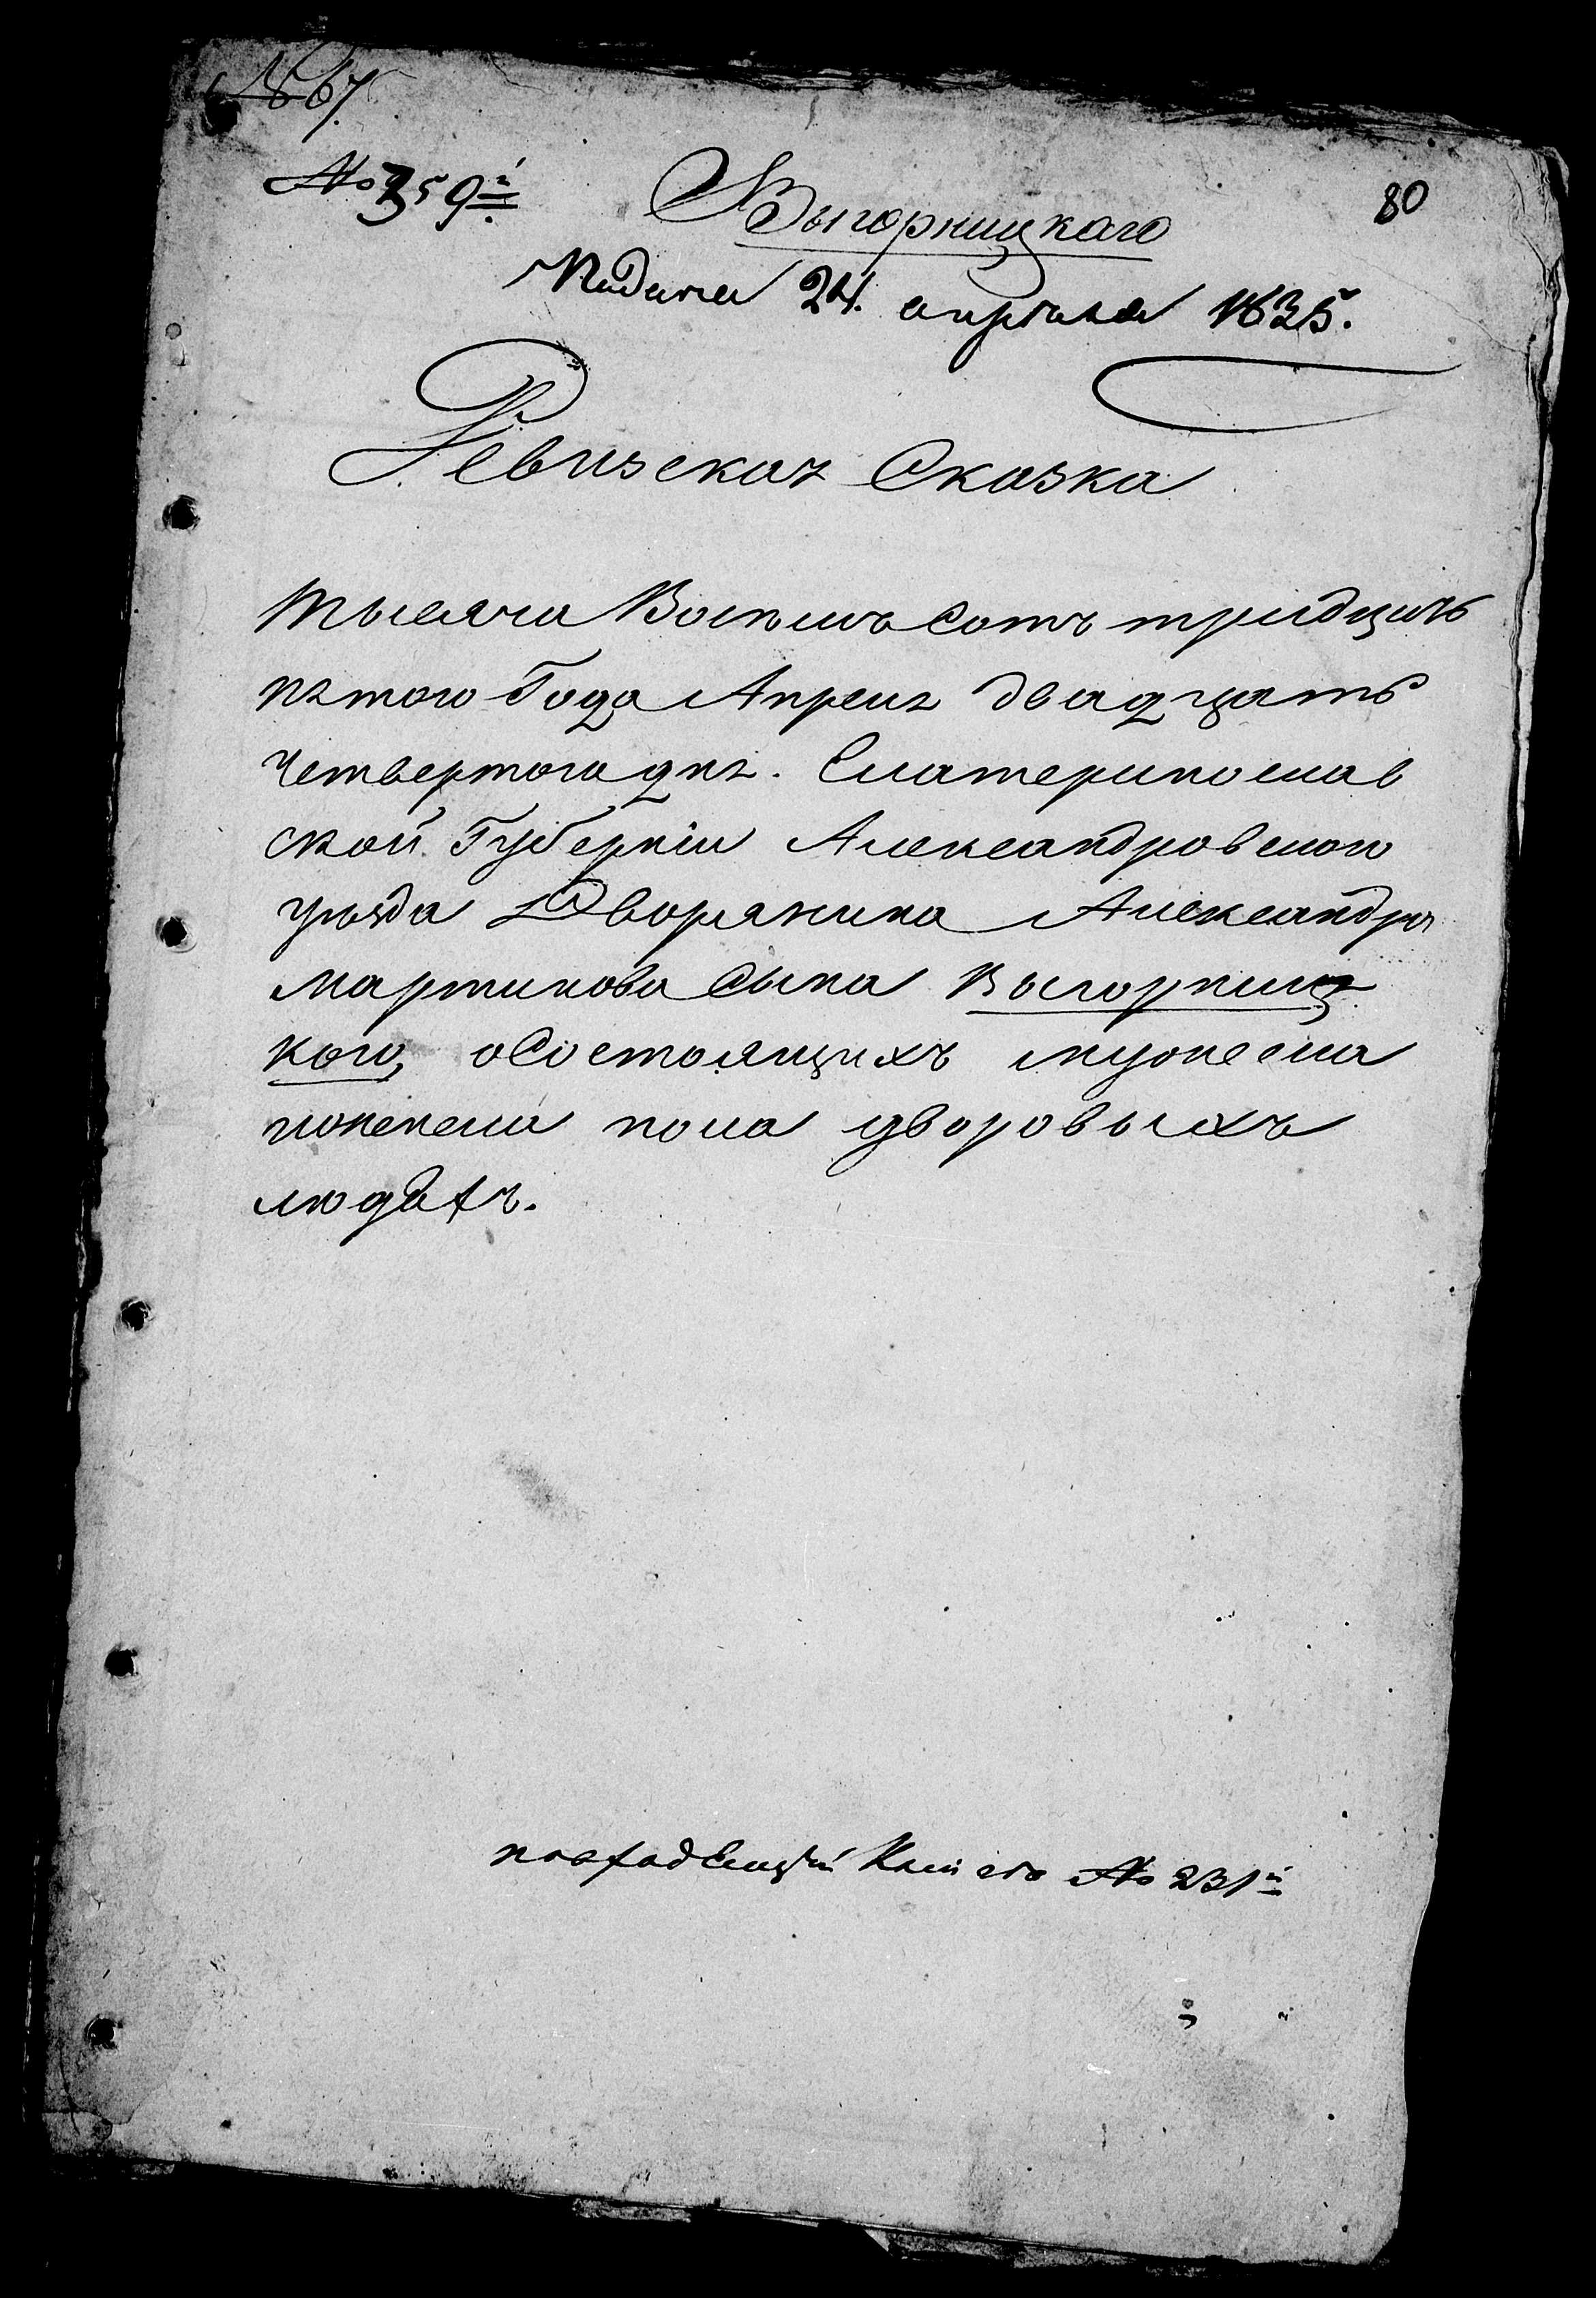 № 67.
№ 359й
80
Выгорницкаго
Подана 24. апреля 1835.
Ревизская Сказка
Тысяча Восемь Сотъ тридцать
пятого Года Апреля двадцать
четвертого дня. Екатеринослав
ской Губерніи Александровского
уезда Дворянина Александра
Мартинова Сына Выгорниц
кого, осостоящихъ мужеска
иженска пола дворовыхъ
людяхъ.
№ 231й